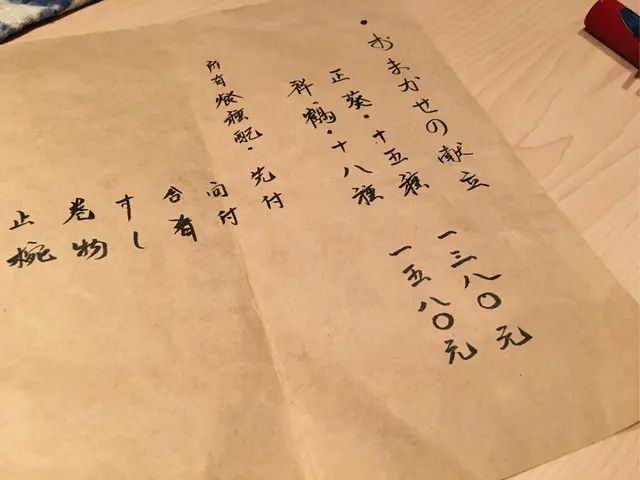 ・おまかせの献立
正葵・十五種 一三八〇元
祥鶴・十八種 一五八〇元
所有餐種配・先付
向付
合肴
すし
巻物
止椀